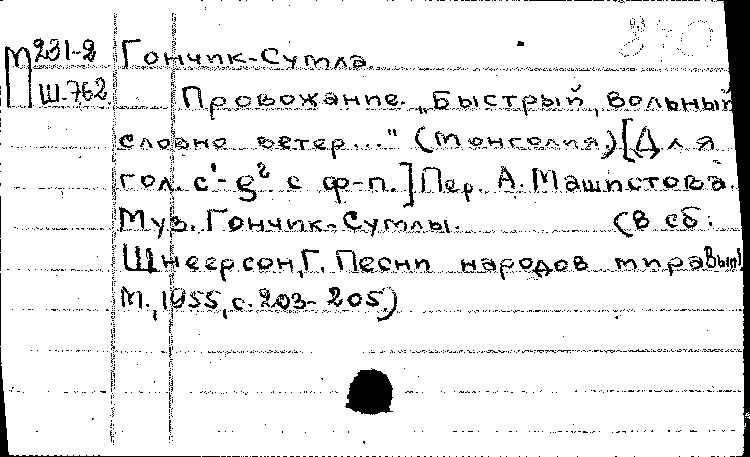 М231-2 Гончик-Сумла.
Ш.762. Провожание. „Быстрый, вольный
словно ветер..." (Монголия) [Для
гол. c¹- g² с ф-п.] Пер. А. Машистова.
Муз. Гончик-Сумлы. (В сб:
Шнеерсон, Г. Песни народов мира Вып1
М., 1955, с. 203-205.)